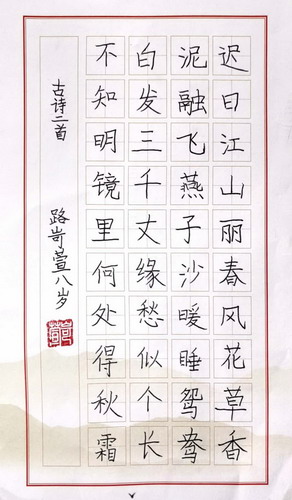 迟日江山丽春风花草香
泥融飞燕子沙暖睡鸳鸯
白发三千丈缘愁似个长
不知明镜里何处得秋霜
古诗二首
路岢萱八岁